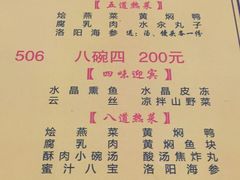 【五道热菜】
烩燕菜 黄焖鸭
腐乳肉 水汆丸子
洛阳海参 送:汤、馒头各一份
506 八碗四 200元
【四味迎宾】
水晶熏鱼 水晶皮冻
云丝 凉拌山野菜
【八道热菜】
烩燕菜 黄焖鸭
腐乳肉 黄焖鱼块
酥肉小碗汤 酸汤焦炸丸
蜜汁八宝 洛阳海参